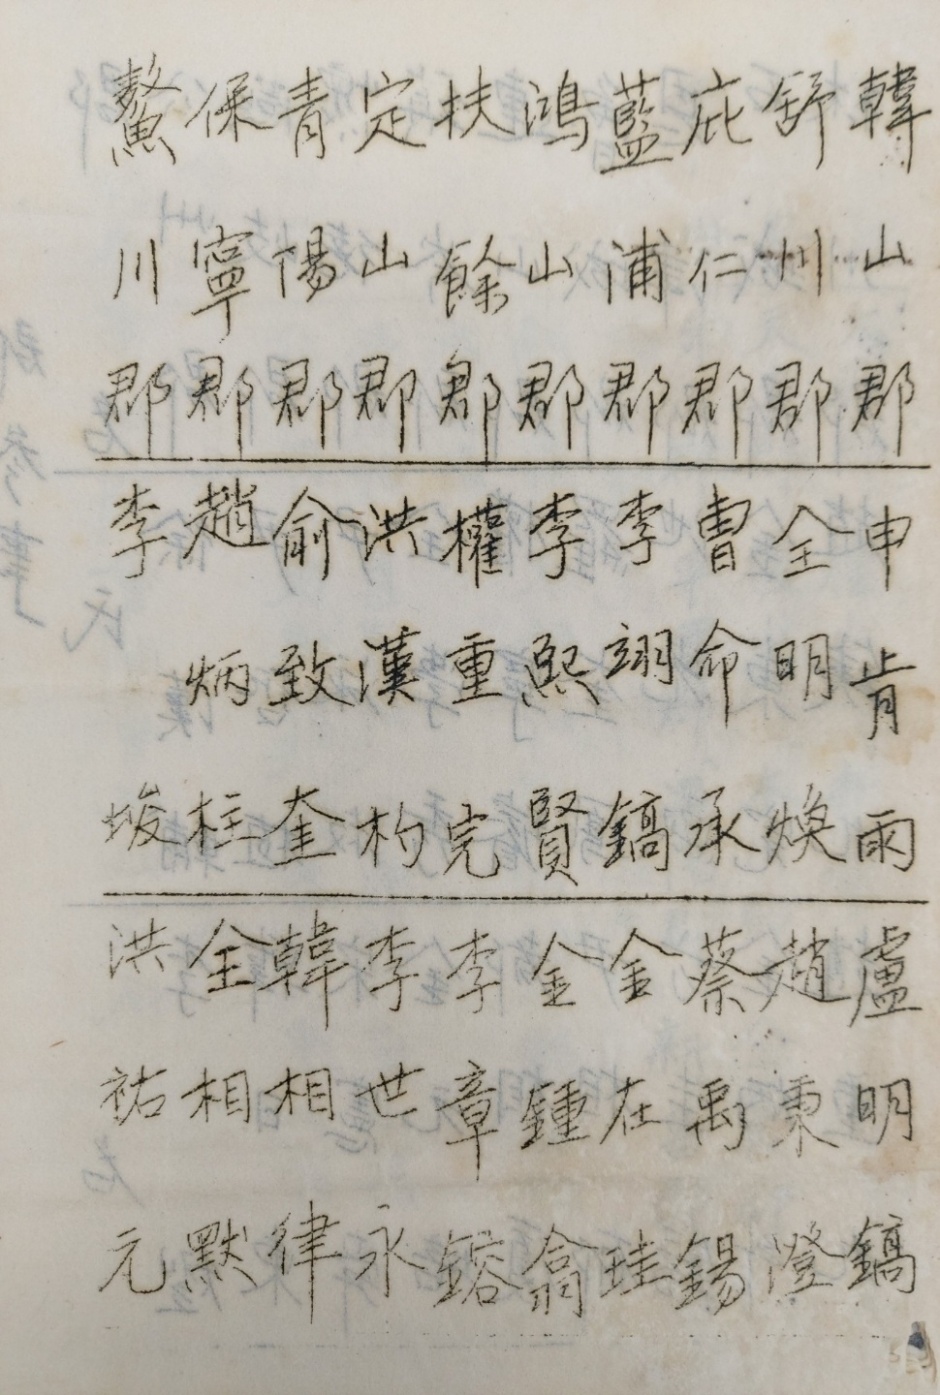 韓山郡 申肯雨 盧明鎬
舒川郡 全明煥 趙秉澄
庇仁郡 曺命承 蔡禹錫
藍浦郡 李翊鎬 金在珪
鴻山郡 李熙賢 金鍾翕
扶餘郡 權重完 李章鎔
定山郡 洪漢杓 李世永
青陽郡 俞致奎 韓相律
保寧郡 趙炳柱 全相默
鰲川郡 李埈 洪祐元